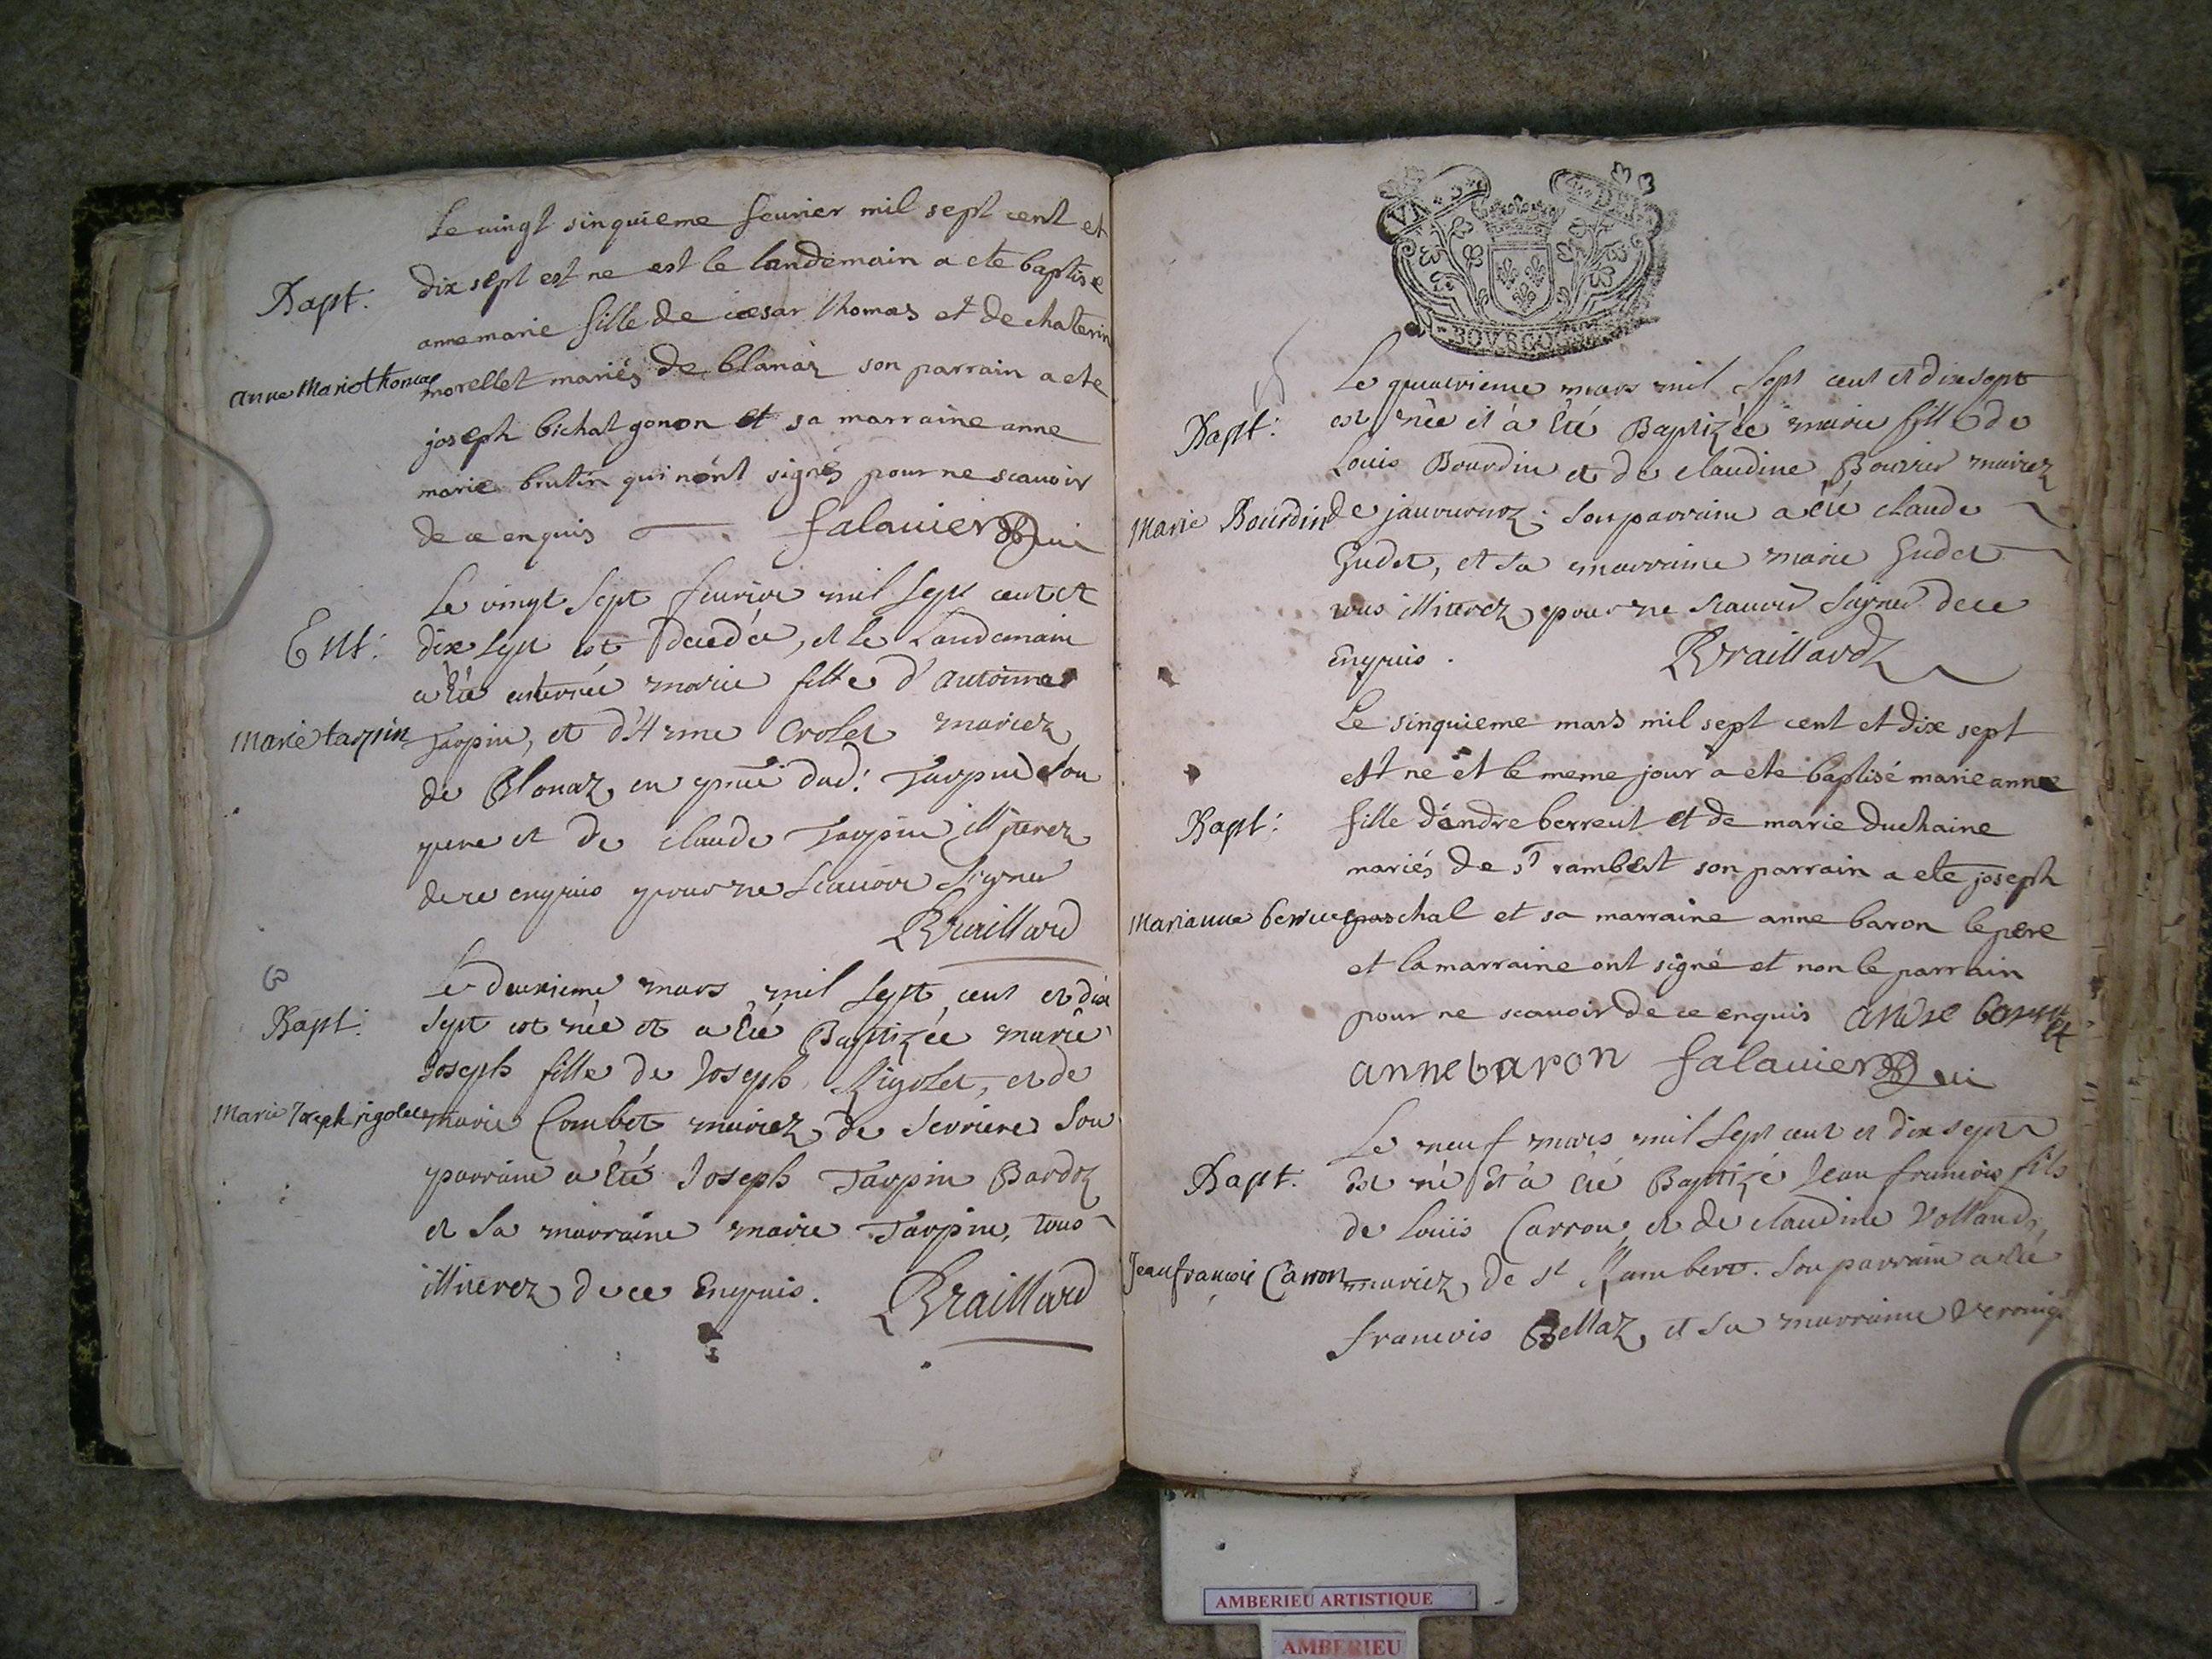 Le vingt sinquieme feurier mil sept cent et
Bapt. dix sept est ne est le landemain a ete baptise
anne marie fille de cæsar thomas et de chaterin
anne Marie thomas morellet mariés de blanaz son parrain a ete
joseph bichat gonon et sa marraine anne
marie brutin qui nónt signés pour ne scauoir
de ce enquis falauier
Le vingt Sept feurier mil Sept cent et
Ent: dix Sept est decedée, et le Landemain
a été enterrée marie fille d'antoine
Marie tarpin Tarpin, et d'Anne Crolet mariez
de Blanaz, en pnce dud: Tarpin Son
pere et de claude Tarpin illiterez
de ce enquis pour ne Scauoir Signer
Braillard
Le deuxieme mars mil Sept cent et dix
Bapt: Sept est née et a été Baptizée marie
Joseph fille de Joseph Rigolet, et de
Marie Joseph rigolet marie Combet mariez de Serriere Son
parrain a été Joseph Tarpin Bardoz
et Sa marraine marie Tarpin, tous
illiterez de ce Enquis. Braillard
VI D
BOVRGO
Le quatrieme mars mil Sept cent et dix sept
Bapt: est née et à été Baptizée marie fille de
Louis Bourdin et de claudine Bourrier mariez
Marie Bourdin de ; Son parrain a été claude
Gudet, et Sa marraine marie Gudet
tous illiterez, pour ne Scauoir Signer de ce
Enquis. Braillard
Le sinquieme mars mil sept cent et dix sept
est ne et le meme jour a ete baptisé marie anne
Bapt: fille d'andre berreut et de marie duchaine
mariés de st rambert son parrain a ete joseph
Marianne paschal et sa marraine anne baron le pere
et la marraine ont signé et non le parrain
pour ne scauoir de ce enquis andre
anne baron falauier
Le neuf mars mil Sept cent et dix sept
Bapt: Est né Et à été Baptizé Jean francois fils
de Louis Carron, et de claudine Volland
Jean francois Carron mariez de st Rambert. Son parrain a été
francois Bellaz, et Sa marraine
AMBERIEU ARTISTIQUE
AMBERIEU